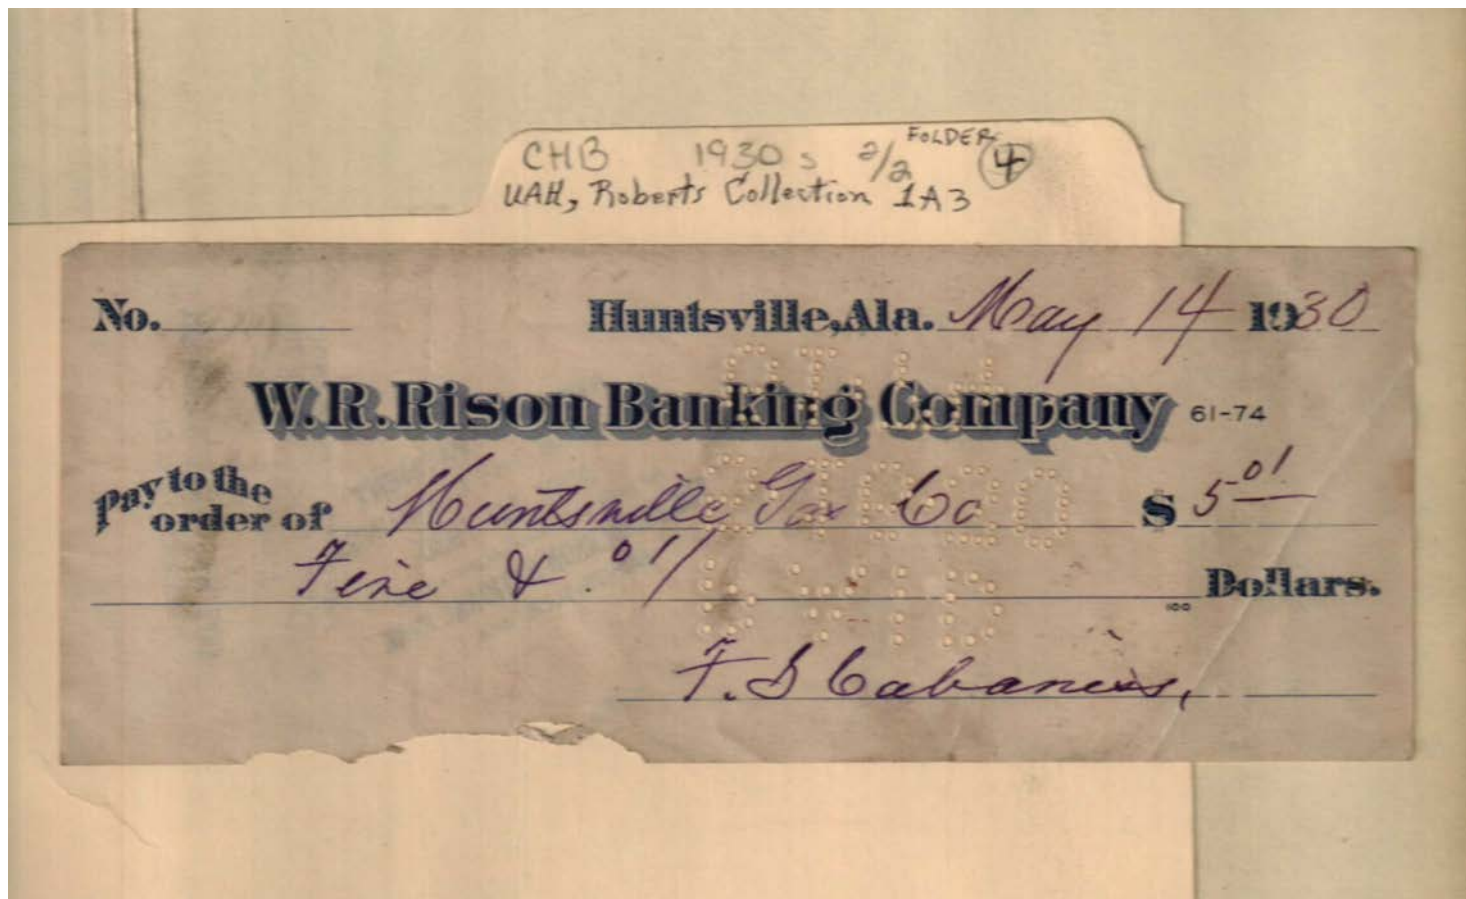 FOLDER
CHB 1930s 2/2 4
UAH, Roberts Collection 1A3
No. Huntsville, Ala. May 14 1930
W. R. Rison Banking Company 61-74
Pay to the order of Huntsville Gas Co $ 5 01
Five & .01/ 100 Dollars.
PAID
F. B Cabaniss,